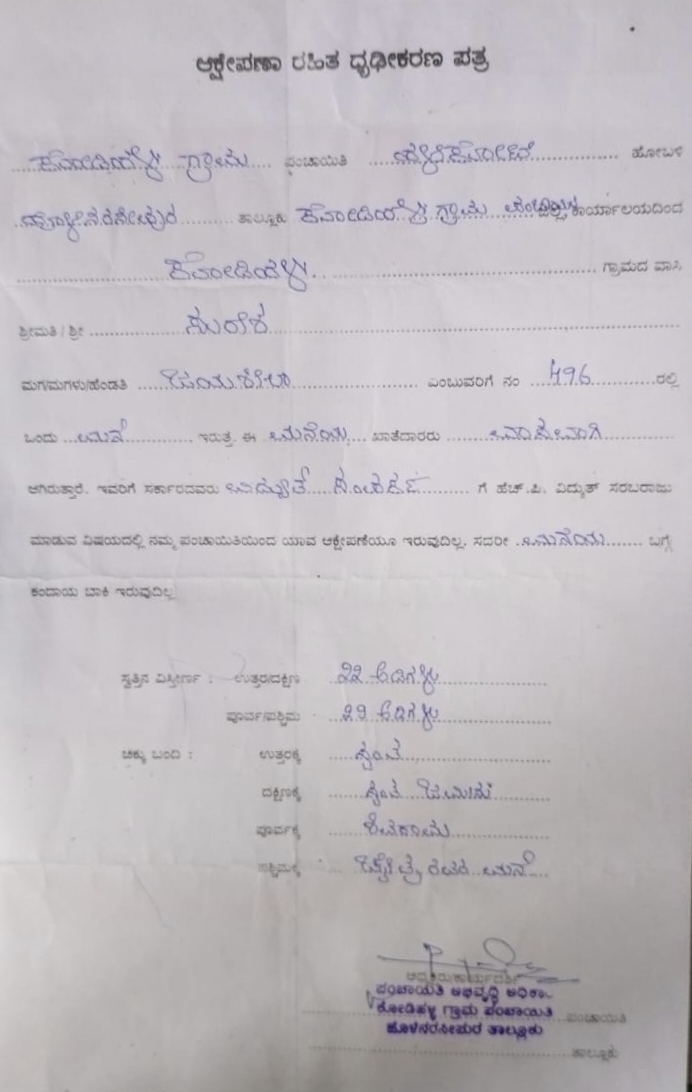 ಆಕ್ಷೇಪಣಾ ರಹಿತ ಧೃಢೀಕರಣ ಪತ್ರ
ಕೋಡಿಹಳ್ಳಿ ಗ್ರಾಮ ಪಂಚಾಯಿತಿ ಹೋಬಳಿ
ಹೊಳೆನರಸೀಪುರ ತಾಲ್ಲೂಕು ಕೋಡಿಹಳ್ಳಿ ಗ್ರಾಮ ಕಾರ್ಯಾಲಯದಿಂದ
ಕೋಡಿಹಳ್ಳಿ ಗ್ರಾಮದ ವಾಸಿ
ಶ್ರೀಮತಿ / ಶ್ರೀ ಸುರೇಶ
ಮಗ/ಮಗಳು/ಹೆಂಡತಿ ಎಂಬುವರಿಗೆ ನಂ 496 ರಲ್ಲಿ
ಒಂದು ಮನೆ ಇರುತ್ತ ಈ ಮನೆಯ ಖಾತೆದಾರರು
ಆಗಿರುತ್ತಾರೆ. ಇವರಿಗೆ ಸರ್ಕಾರದವರು ವಿದ್ಯುತ್ ಗೆ ಹೆಚ್.ಪಿ. ವಿದ್ಯುತ್ ಸರಬರಾಜು
ಮಾಡುವ ವಿಷಯದಲ್ಲಿ ನಮ್ಮ ಪಂಚಾಯಿತಿಯಿಂದ ಯಾವ ಆಕ್ಷೇಪಣೆಯೂ ಇರುವುದಿಲ್ಲ. ಸದರೀ ಮನೆಯ ಬಗ್ಗೆ
ಕಂದಾಯ ಬಾಕಿ ಇರುವುದಿಲ್ಲ
ಸ್ವತ್ತಿನ ವಿಸ್ತೀರ್ಣ : ಉತ್ತರ/ದಕ್ಷಿಣ ೨೨ ಅಡಿಗಳು
ಪೂರ್ವ/ಪಶ್ಚಿಮ ೨೨ ಅಡಿಗಳು
ಚಕ್ಕು ಬಂದಿ : ಉತ್ತರಕ್ಕೆ ಸ್ವಂತ
ದಕ್ಷಿಣಕ್ಕೆ ಸ್ವಂತ ಜಮೀನು
ಪೂರ್ವಕ್ಕೆ ಶಿವರಾಮ
ಪಶ್ಚಿಮಕ್ಕೆ ಮನೆ
ಪಂಚಾಯಿತಿ ಅಭಿವೃದ್ಧಿ ಅಧಿಕಾ.
ಕೋಡಿಹಳ್ಳಿ ಗ್ರಾಮ ಪಂಚಾಯಿತಿ ಪಂಚಾಯಿತಿ
ಹೊಳೆನರಸೀಪುರ ತಾಲ್ಲೂಕು
ತಾಲ್ಲೂಕು